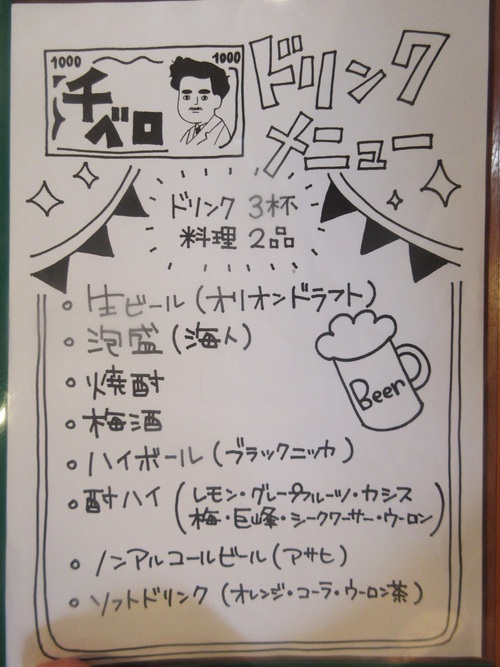 1000 1000
千ベロ
ドリンク
メニュー
ドリンク 3杯
料理 2品
生ビール（オリオンドラフト）
泡盛（海人）
焼酎
梅酒
ハイボール（ブラックニッカ）
酎ハイ（レモン・グレープフルーツ・カシス
梅・巨峰・シークワーサー・ウーロン）
Beer
ノンアルコールビール（アサヒ）
ソフトドリンク（オレンジ・コーラ・ウーロン茶）